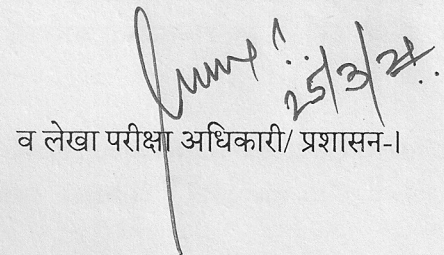 25/3/21
व लेखा परीक्षा अधिकारी/ प्रशासन-।